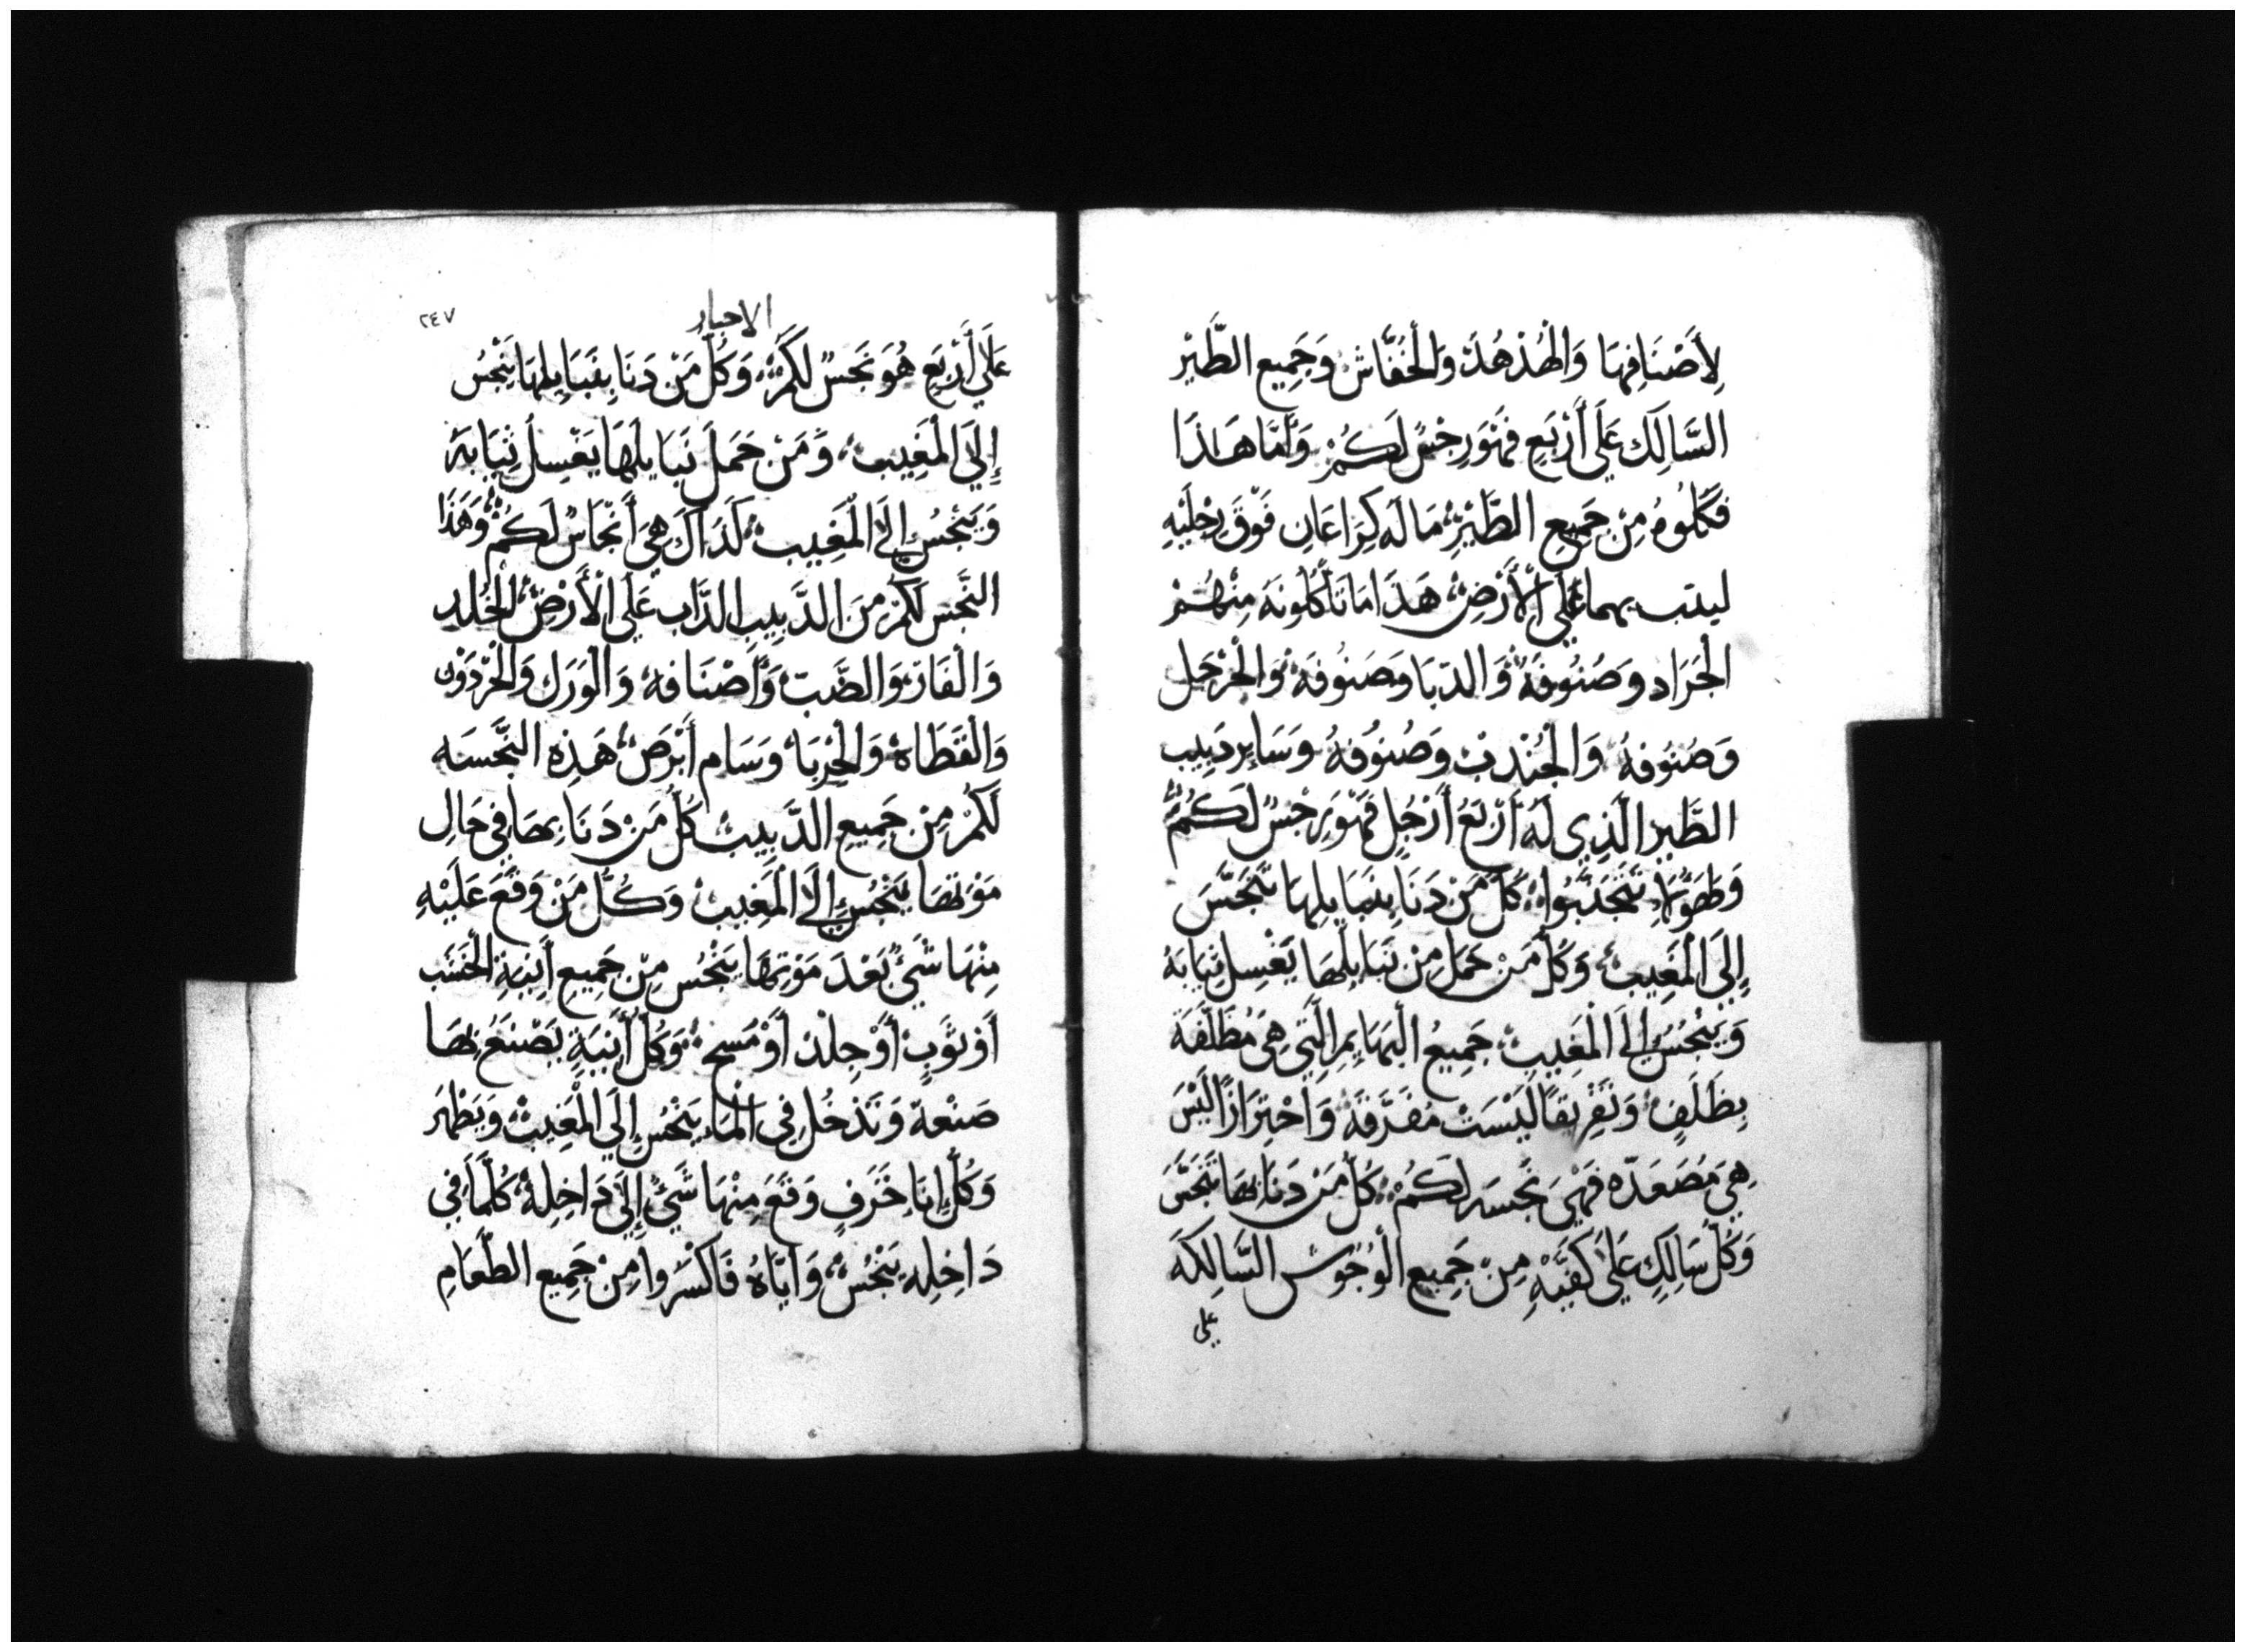 لِأَصْنَافِهَا وَالْهُدْهُدَ وَالْخُفَّاشَ وَجَمِيع الطَّيْر
السَّالِكَ عَلَى أَرْبَعٍ فَهُوَ رِجْسٌ لَكُمْ وَأَمَّا هَاذَا
فَكُلُوهُ مِنْ جَمِيعِ الطَّيْرِ مَا لَه كِرَاعَانِ فَوْقَ رِجْلَيْهِ
ليدب بهما عَلَى الْأَرْضِ هَذَا مَا تَأْكُلُونَهُ مِنْهُمْ
الْجَرَاد وَصُنُوفَهُ وَالدّبَا وَصَنُوفَهُ وَالْحَرْجَل
وَصُنُوفهُ وَالْجُنْدبَ وَصُنُوفهُ وَسَاير دَبِيب
الطَّيْر الَّذِي لَهُ أَرْبَعُ أَرْجُلٍ فَهْوَ رِجْسٌ لَكُمْ
وَلِهَوُلَاءِ تَتَجَنَّبُوا كُلّ مَنْ دَنَا بِنَبَايِلِهَا تَنَجَّسَ
إِلَى الْمَغِيبِ وَكُلّ مَنْ حَمَلَ مِنْ نَبَايِلِهَا يَغْسِل ثِيَابَهُ
وَيَنْجُسُ إِلَى الْمَغِيبِ جَمِيعُ الْبَهَايِمِ الَّتِي هِيَ مُظَلَّفَة
بِظَلَفٍ وَتَفْرِيقًا لَيْسَتْ مُفَرَّقَة وَاجْتِرَارًا لَيْسَ
هِيَ مُصَعَدّه فَهْيَ نَجسَه لَكُمْ كُلّ مَنْ دَنَا بِهَا تَنَجَّسَ
وَكُلّ سَالِكٍ عَلَى كَفَّيْهِ مِنْ جَمِيعِ الْوُحُوش السَّالِكَة
على
٢٤٧
الاحبار
عَلَى أَرْبَعٍ هُوَ نَجسٌ لَكُمْ وَكُلّ مَنْ دَنَا بِنَبَايِلِهَا يَنْجُسُ
إِلَى الْمَغِيبِ وَمَنْ حَمَلَ نَبَايلَهَا يَغْسِلُ ثِيَابَهُ
وَيَنْجُسُ إِلَى الْمَغِيبِ كَذَاكَ هِيَ أَنْجَاسٌ لَكُمْ وَهَذَا
النَّجس لَكُمْ مِنَ الدَّبِيبِ الدَّابِ عَلَى الْأَرْضِ الْخُلد
وَالْفَار وَالضَّبّ وَأَصْنَافه وَالْوَرَل وَالْحَرْدَوْن
وَالْقَطَاه وَالْحَرْبَا وَسَام أَبْرَصَ هَذِهِ النَّجَسَه
لَكُمْ مِنْ جَمِيعِ الدَّبِيبِ كُلّ مَنْ دَنَا بِهَا فِي حَالِ
مَوْتهَا يَنْجُس إِلَى الْمَغِيبِ وَكُلّ مَنْ وَقَعَ عَلَيْهِ
مِنْهَا شَيٌ بَعْدَ مَوْتِهَا يَنْجُس مِنْ جَمِيعِ أَنِيَةِ الْخَشَب
أَوْ ثَوْبٍ أَوْ جِلْد أَوْ مَسحٍ وَكُلّ أَنِيَةٍ يُصْنَعُ بِهَا
صَنْعة وَتَدْخُل فِي الْمَاء يَنْجُس إِلَى الْمَغِيب وَيَطْهر
وَكُلّ إِنَا خَزَفٍ وَقَعَ مِنْهَا شَيٌ إِلَى دَاخِلِهُ كُلَّمَا فِي
دَاخِلِهِ يَنْجُسُ وَإِيَّاهُ فَاكْسُرُوا مِنْ جَمِيعِ الطَّعَامِ